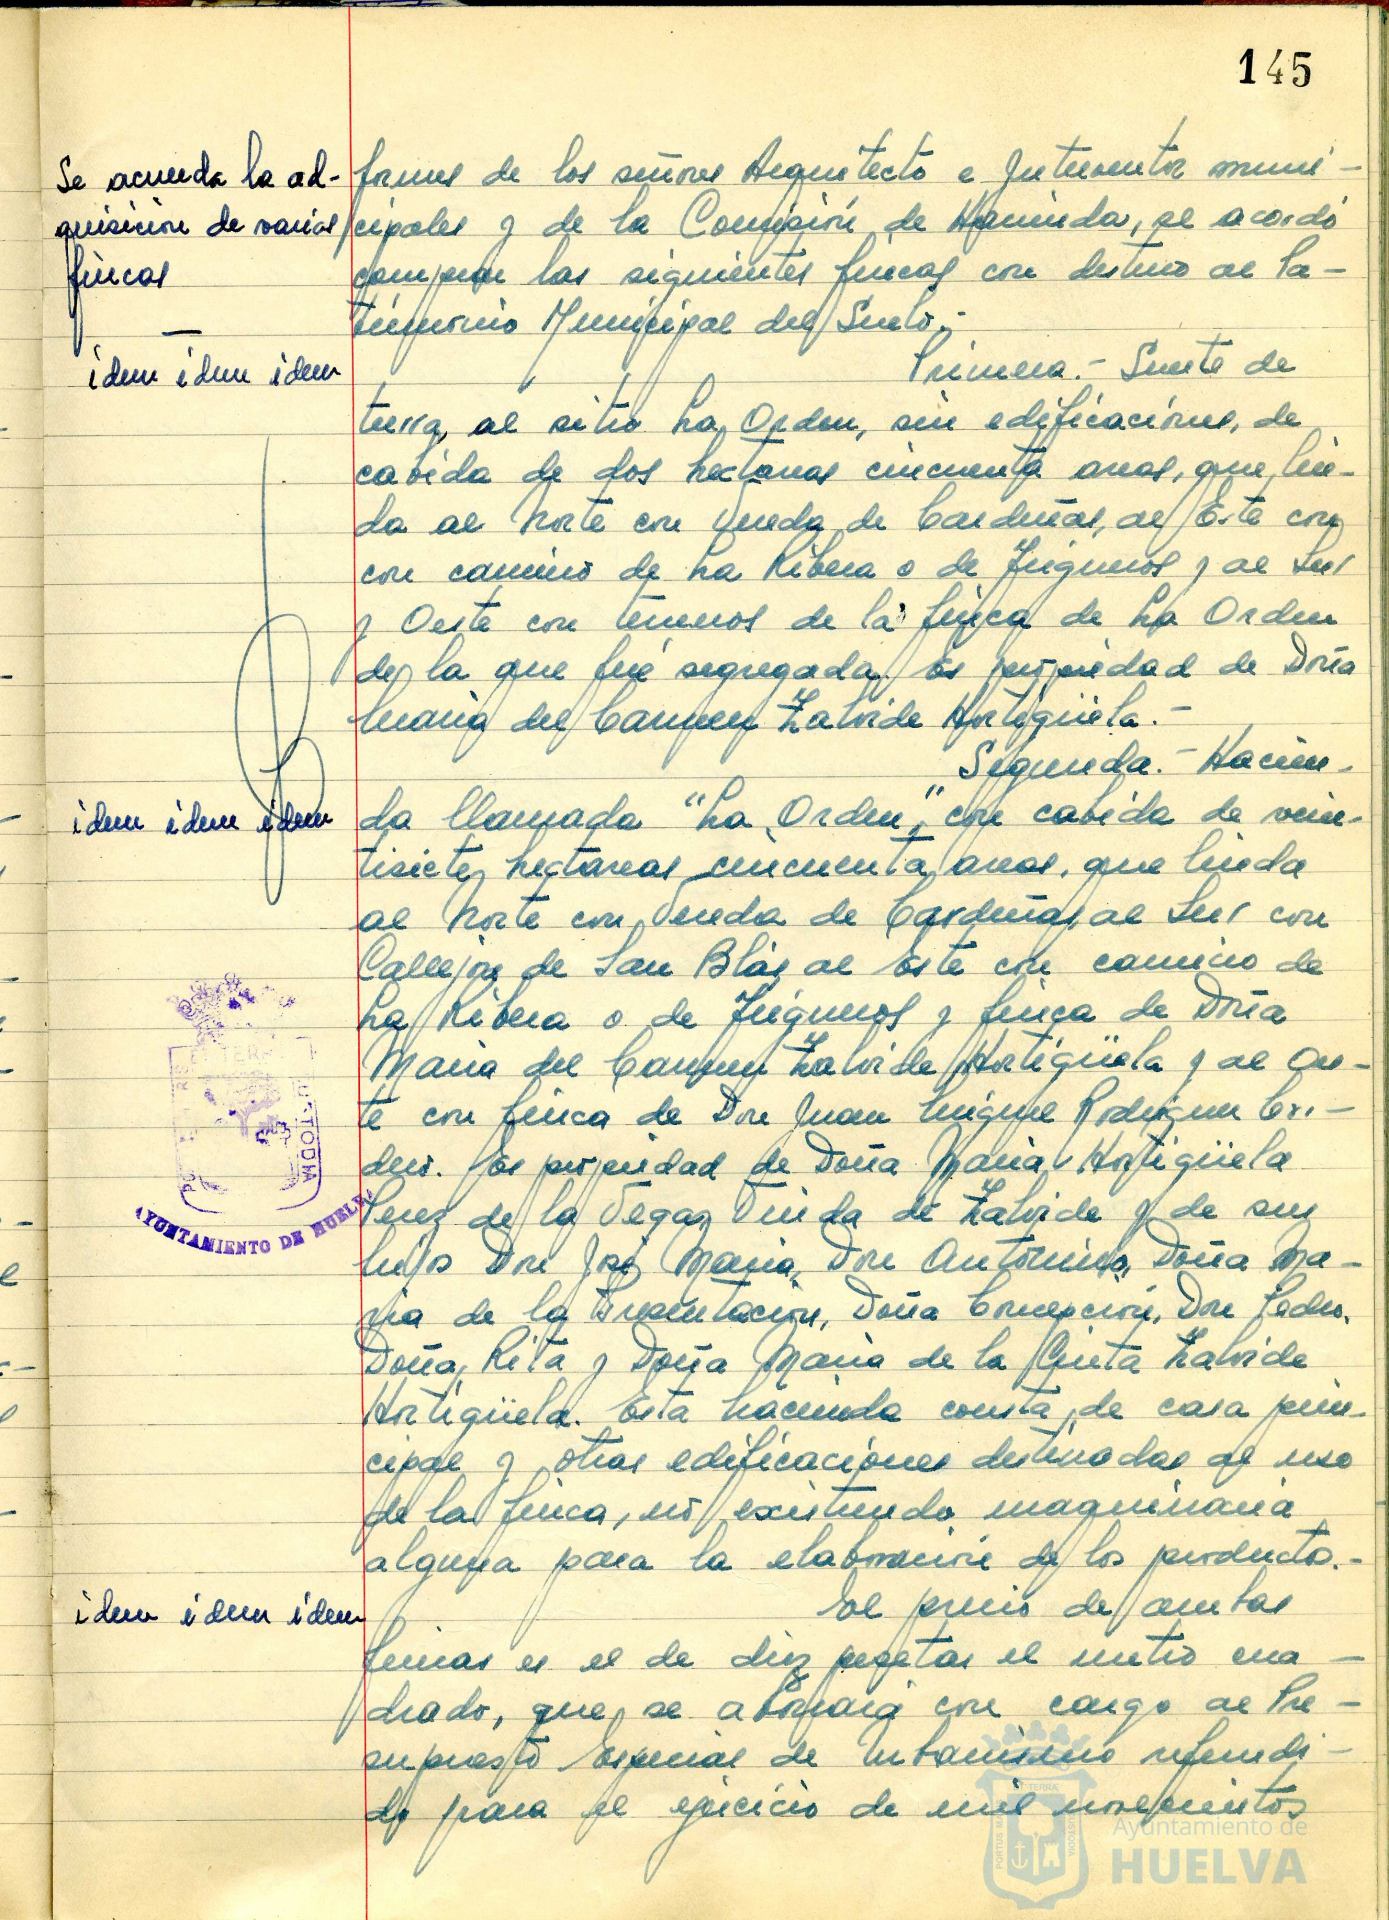 145
Se acuerda la ad-
quisición de varias
fincas
idem idem idem
idem idem idem
idem idem idem
formes de los señores Arquitecto e Interventor muni-
cipales y de la Comisión de Hacienda, se acordó
comprar las siguientes fincas con destino al Pa-
trimonio Municipal del Suelo.-
Primera.- Suerte de
tierra, al sitio La Orden, sin edificaciones, de
cabida de dos hectareas cincuenta areas, que lin-
da al Norte con Vereda de Cardeñas, al Este con
con camino de La Ribera o de Trigueros y al Sur
y Oeste con terrenos de la finca de La Orden
de la que fué segregada. Es propiedad de Doña
Maria del Carmen Zalvide Hortigüela.-
Segunda.- Hacien-
da llamada "La Orden", con cabida de vein-
tisiete hectareas cincuenta areas, que linda
al Norte con Vereda de Cardeñas, al Sur con
Callejón de San Blás al Este con camino de
La Ribera o de Trigueros y finca de Doña
Maria del Carmen Zalvide Hortigüela y al Oes-
te con finca de Don Juan Miguel Rodriguez
Es propiedad de Doña Maria Hortigüela
Perez de la Vega, Viuda de Zalvide y de sus
hijos Don José Maria, Don Antonino, Doña Ma-
ria de la Presentación, Doña Concepción, Don Pedro,
Doña Rita y Doña Maria de la Cinta Zalvide
Hortigüela. Esta hacienda consta de casa prin-
cipal y otras edificaciones destinadas al uso
de la finca, no existiendo maquinaria
alguna para la elaboración de los productos.-
El precio de ambas
fincas es el de diez pesetas el metro cua-
drado, que se abonará con cargo al Pre-
supuesto Especial de Urbanismo refundi-
do para el ejercicio de mil novecientos
AYUNTAMIENTO DE HUELVA
Ayuntamiento de
HUELVA